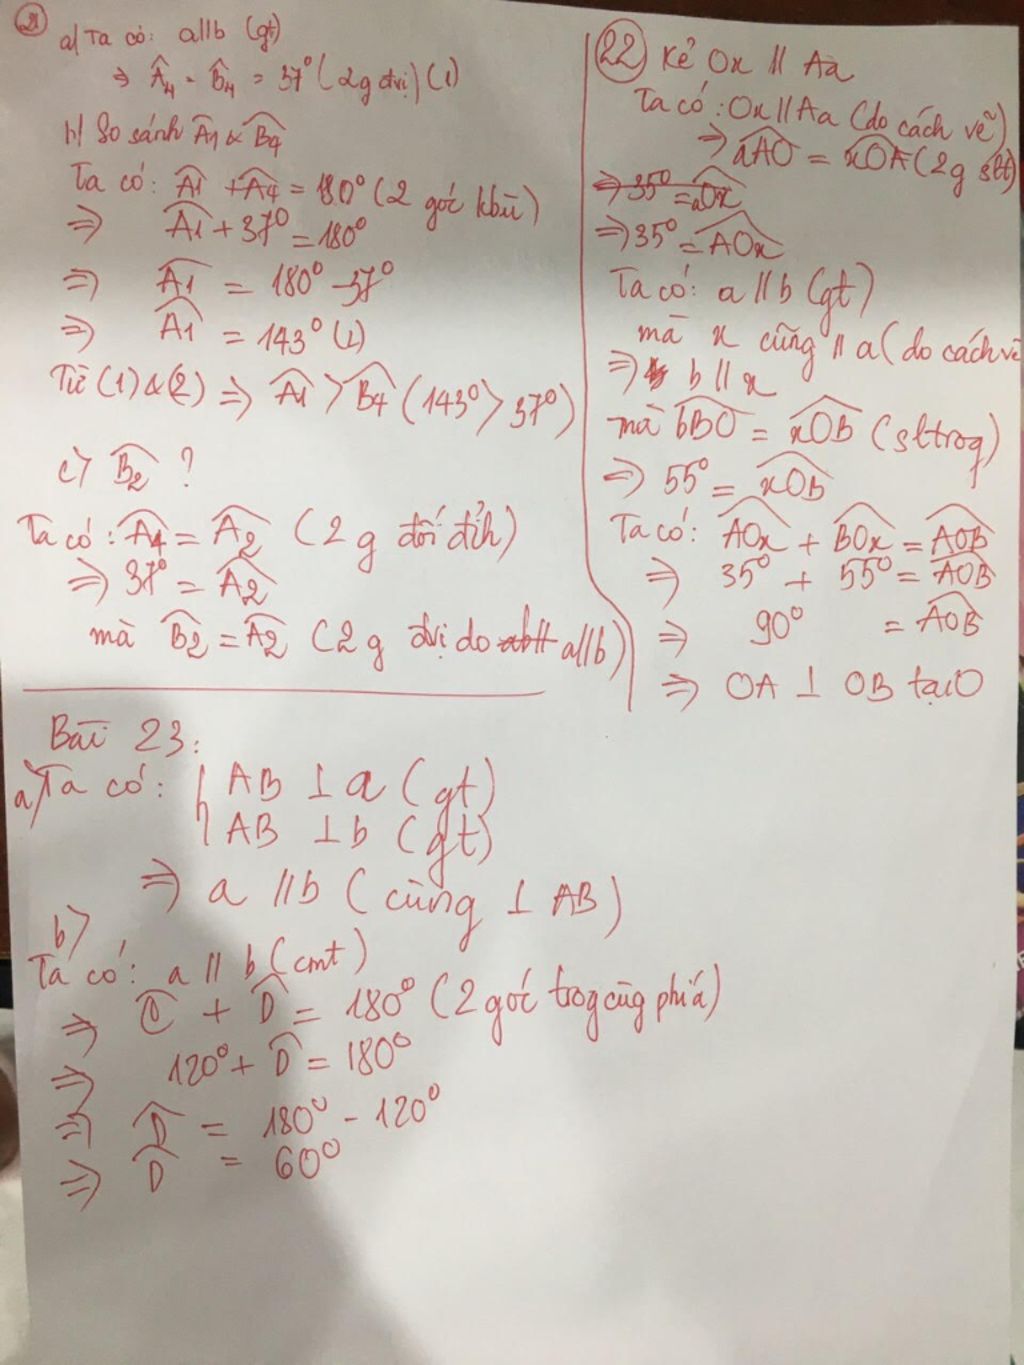 21
a) Ta có: a//b (gt)
⇒ Â4 = B̂4 = 37° (2g đvị) (1)
b) So sánh Â1 & B̂4
Ta có: Â1 + Â4 = 180° (2 góc kbù)
⇒ Â1 + 37° = 180°
⇒ Â1 = 180° - 37°
⇒ Â1 = 143° (2)
Từ (1) & (2) ⇒ Â1 > B̂4 (143° > 37°)
c) B̂2 ?
Ta có: Â4 = Â2 (2 g đối đỉh)
⇒ 37° = Â2
mà B̂2 = Â2 (2 g đvị do a//b)
22 Kẻ Ox // Aa
Ta có: Ox // Aa (do cách vẽ)
⇒ aAO = xOA (2g slt)
⇒ 35° = aOx
⇒ 35° = AOx
Ta có: a // b (gt)
mà x cũng // a (do cách vẽ
⇒ b // x
mà bBO = xOB (sltrog)
⇒ 55° = xOB
Ta có: AOx + BOx = AOB
⇒ 35° + 55° = AOB
⇒ 90° = AOB
⇒ OA ⊥ OB tại O
Bài 23:
a) Ta có: { AB ⊥ a (gt)
AB ⊥ b (gt)
⇒ a // b (cùng ⊥ AB)
b)
Ta có: a // b (cmt)
⇒ Ĉ + D̂ = 180° (2 góc trog cùg phía)
⇒ 120° + D̂ = 180°
⇒ D̂ = 180° - 120°
⇒ D̂ = 60°